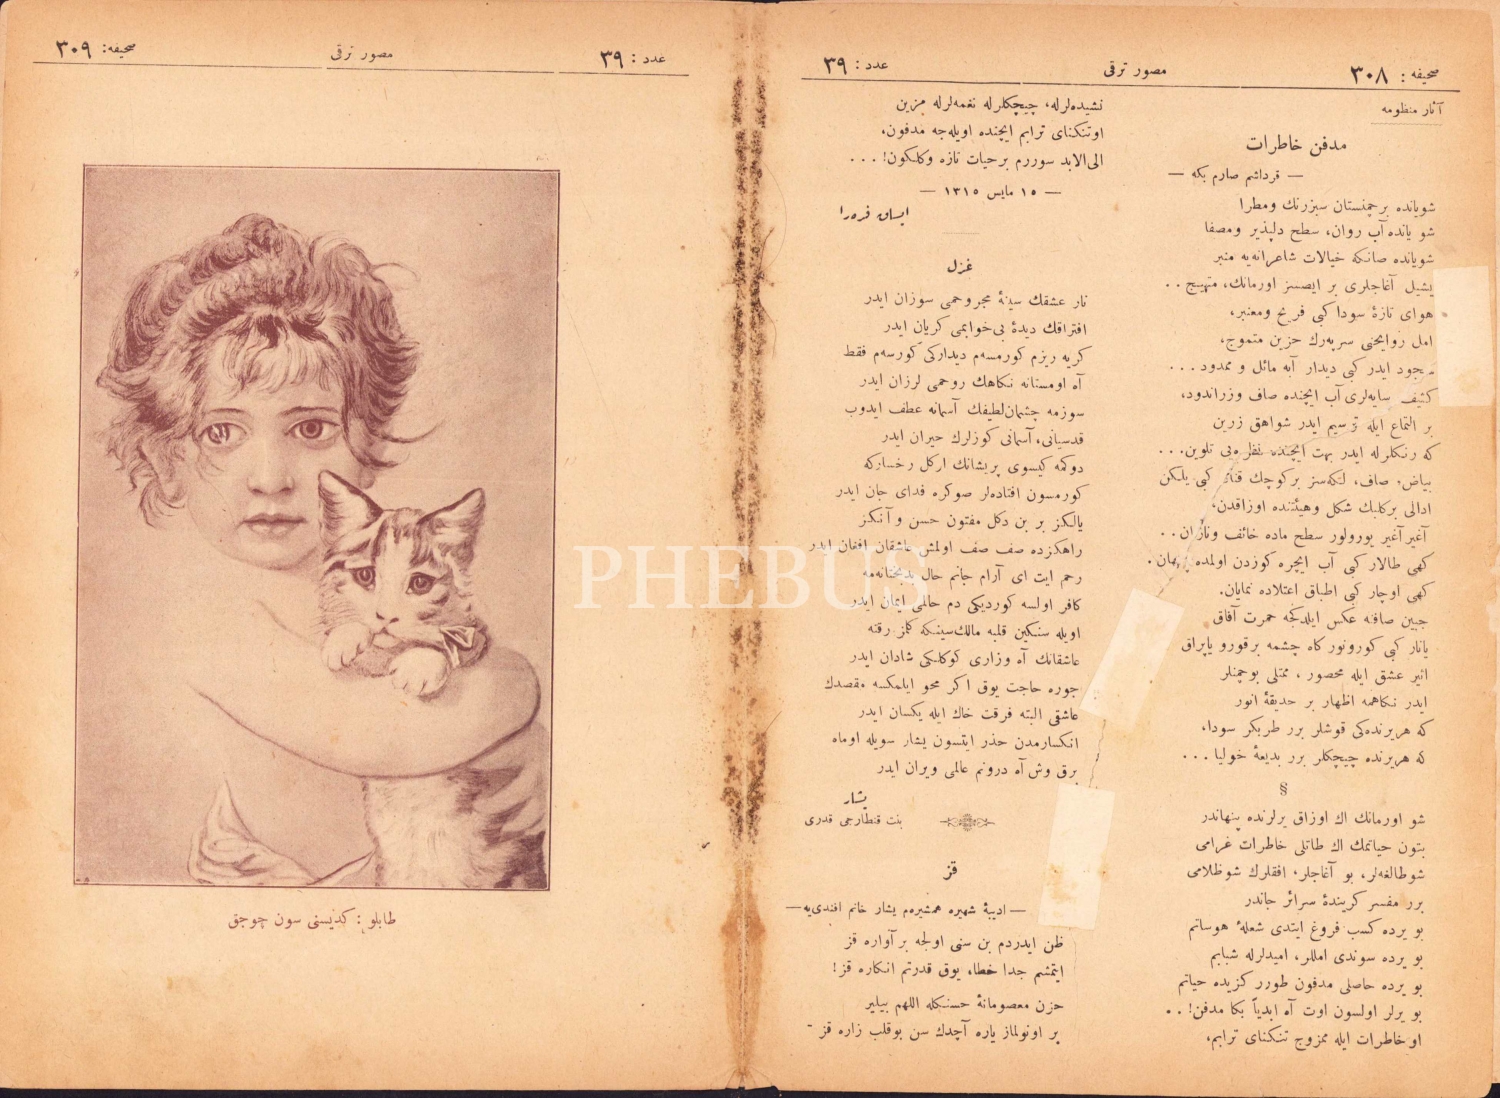 صحیفه: ٣٠٨
مصور ترقی
عدد: ٣٩
آثار منظومه
مدفن خاطرات
— قرداشم صارم بكه —
شویانده برچمنستان سبزرنك ومطرا
شو یانده آب روان، سطح دلپذیر ومصفا
شویانده صانكه خیالات شاعرانه‌یه منبر
یشیل آغاجلری بر ایصسز اورمانك، متهیج . .
هوای تازهٔ سودا كبی فریح ومعنبر،
امل روایحنی سرپه‌رك حزین متموج،
ایدر كبی دیدار آبه مائل و ممدود . . .
كثیف سایه‌لری آب ایچنده صاف وزراندود،
بر التماع ایله ترسیم ایدر شواهق زرین
كه رنكلرله ایدر بهت ایچنده نظره‌یی تلوین. . .
بیاض، صاف، لكه‌سز بركوچك كبی یلكن
ادالی بركلبك شكل وهیئتنده اوزاقدن،
آغیر آغیر یورولور سطح ماده خائف ونازان . .
كهی طالار كبی آب ایچره كوزدن اولمده .
كهی اوچار كبی اطباق اعتلاده نمایان.
جبین صافنه عكس ایلدكجه حمرت آفاق
یانار كبی كورونور كاه چشمه برقورو یاپراق
اثیر عشق ایله محصور ، ممتلی بوچمنلر
ایدر نكاهمه اظهار بر حدیقهٔ انور
كه هریرنده‌كی قوشلر برر طربكر سودا،
كه هریرنده چیچكلر برر بدیعهٔ خولیا . . .
§
شو اورمانك اك اوزاق یرلرنده پنهاندر
بتون حیاتمك اك طاتلی خاطرات غرامی
شوطالغه‌لر، بو آغاجلر، افقلرك شوظلامی
برر مفسر كریندهٔ سرائر جاندر
بو یرده كسب فروغ ایتدی شعلهٔ هوساتم
بو یرده سوندی امللر، امیدلرله شبابم
بو یرده حاصلی مدفون طورر كزیده حیاتم
بو یرلر اولسون اوت آه ابدیاً بكا مدفن! . .
اوخاطرات ایله ممزوج تنكنای ترابم،
نشیده‌لرله، چیچكلرله نغمه‌لرله مزین
اوتنكنای ترابم ایچنده اویله‌جه مدفون،
الی‌الابد سوررم برحیات تازه وكلكون! . . .
— ١٥ مایس ١٣١٥ —
ایساق فره‌را
غزل
نار عشقك سینهٔ مجروحمی سوزان ایدر
افتراقك دیدهٔ بی‌خوابمی كریان ایدر
كریه ریزم كورمسه‌م دیداركی كورسه‌م فقط
آه اومستانه نكاهك روحمی لرزان ایدر
سوزمه چشمان‌لطیفك آسمانه عطف ایدوب
قدسیانی، آسمانی كوزلرك حیران ایدر
دوكمه كیسوی پریشانك اركل رخساركه
كورمسون افتاده‌لر صوكره فدای جان ایدر
یالكز بر بن دكل مفتون حسن و آنكز
راهكزده صف صف اولمش عاشقان افغان ایدر
رحم ایت ای آرام جانم حال
كافر اولسه كوردیكی دم حالمی ایمان ایدر
اویله سنكین قلبه مالك‌سینكه كلمز رقته
عاشقانك آه وزاری كوكلكی شادان ایدر
جوره حاجت یوق اكر محو ایلمكسه مقصدك
عاشقی البته فرقت خاك ایله یكسان ایدر
انكسارمدن حذر ایتسون یشار سویله اوماه
برق وش آه درونم عالمی ویران ایدر
یشار
بنت قنطارجی قدری
قز
— ادیبهٔ شهیره همشیره‌م یشار خانم افندی‌یه —
ظن ایدردم بن سنی اولجه بر آواره قز
ایتمشم جدا خطا، یوق قدرتم انكاره قز!
حزن معصومانهٔ حسنكله اللهم بیلیر
بر اونولماز یاره آچدك سن بوقلب زاره قز
عدد : ٣٩
مصور ترقی
صحیفه: ٣٠٩
طابلو : كدیسنی سون چوجق
PHEBUS